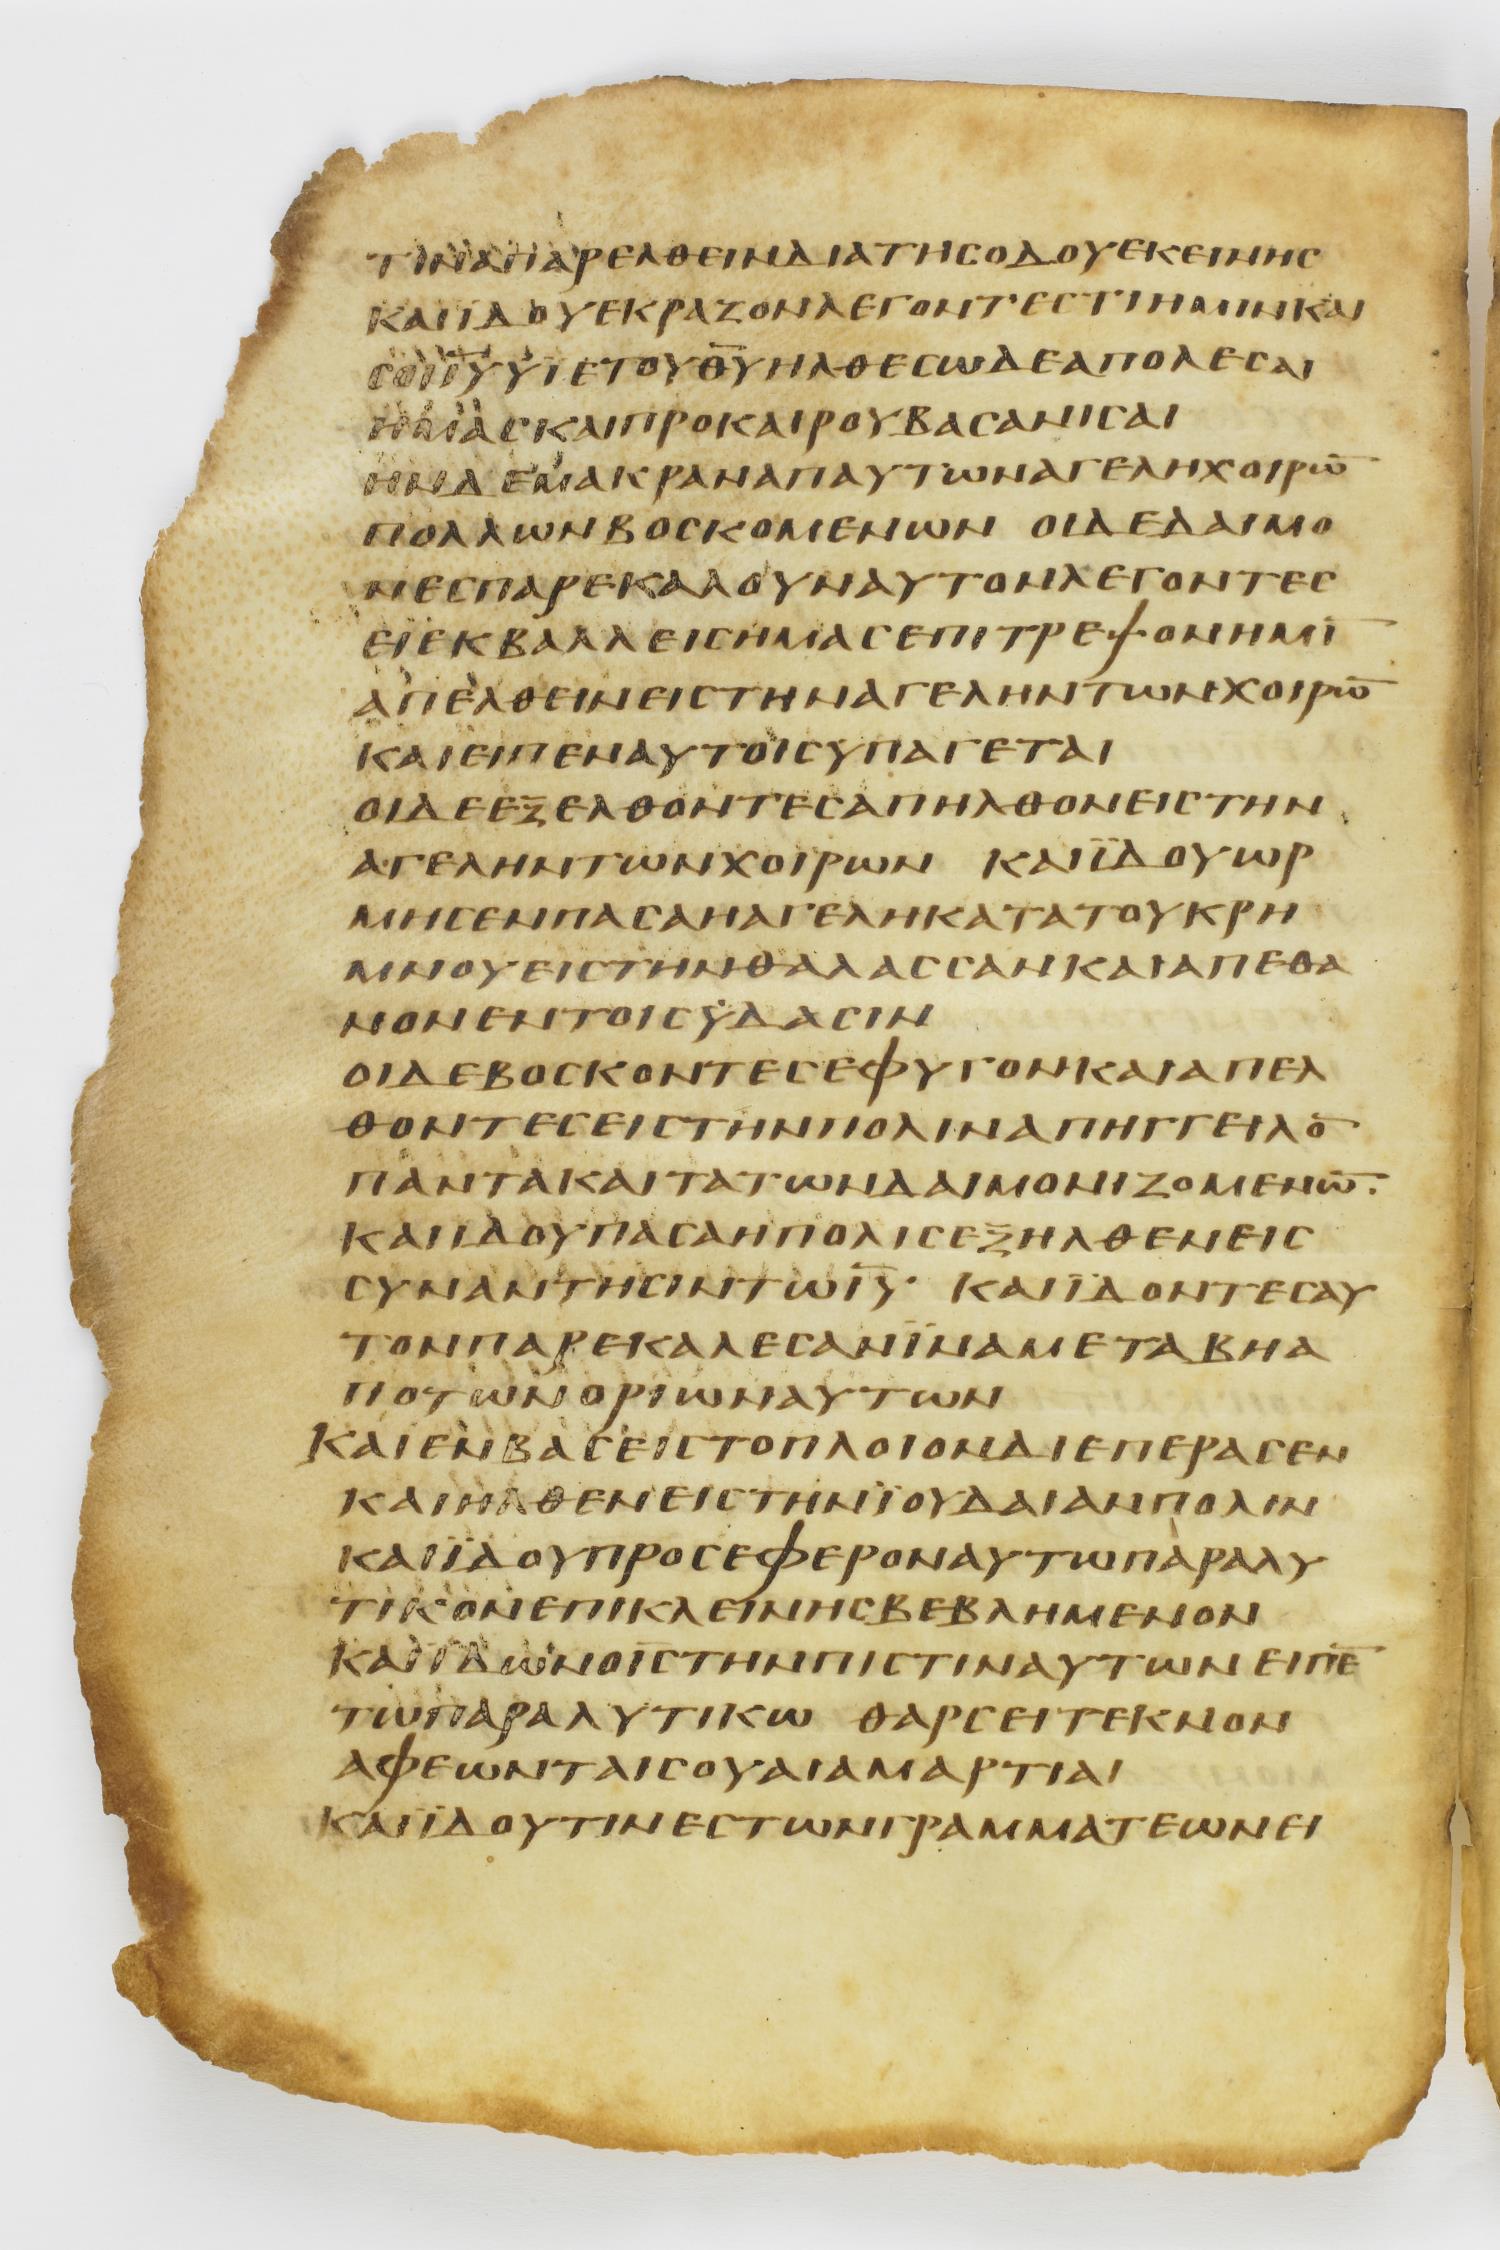 ΤΙΝΑΠΑΡΕΛΘΕΙΝΔΙΑΤΗСΟΔΟΥΕΚΕΙΝΗС
ΚΑΙΪΔΟΥΕΚΡΑΖΟΝΛΕΓΟΝΤΕСΤΙΗΜΙΝΚΑΙ
СΟΙΙ̅Υ̅ΥΙΕΤΟΥΘ̅Υ̅ΗΛΘΕСΩΔΕΑΠΟΛΕСΑΙ
ΗΜΑСΚΑΙΠΡΟΚΑΙΡΟΥΒΑСΑΝΙСΑΙ
ΗΝΔΕΜΑΚΡΑΝΑΠΑΥΤΩΝΑΓΕΛΗΧΟΙΡΩ̅
ΠΟΛΛΩΝΒΟСΚΟΜΕΝΩΝ ΟΙΔΕΔΑΙΜΟ
ΝΕСΠΑΡΕΚΑΛΟΥΝΑΥΤΟΝΛΕΓΟΝΤΕС
ΕΙΕΚΒΑΛΛΕΙСΗΜΑСΕΠΙΤΡΕΨΟΝΗΜΙ̅
ΑΠΕΛΘΕΙΝΕΙСΤΗΝΑΓΕΛΗΝΤΩΝΧΟΙΡΩ̅
ΚΑΙΕΙΠΕΝΑΥΤΟΙСΥΠΑΓΕΤΑΙ
ΟΙΔΕΕΞΕΛΘΟΝΤΕСΑΠΗΛΘΟΝΕΙСΤΗΝ
ΑΓΕΛΗΝΤΩΝΧΟΙΡΩΝ ΚΑΙΪΔΟΥΩΡ
ΜΗСΕΝΠΑСΑΗΑΓΕΛΗΚΑΤΑΤΟΥΚΡΗ
ΜΝΟΥΕΙСΤΗΝΘΑΛΑССΑΝΚΑΙΑΠΕΘΑ
ΝΟΝΕΝΤΟΙСΫΔΑСΙΝ
ΟΙΔΕΒΟСΚΟΝΤΕСΕΦΥΓΟΝΚΑΙΑΠΕΛ
ΘΟΝΤΕСΕΙСΤΗΝΠΟΛΙΝΑΠΗΓΓΕΙΛΟ̅
ΠΑΝΤΑΚΑΙΤΑΤΩΝΔΑΙΜΟΝΙΖΟΜΕΝΩ̅.
ΚΑΙΙΔΟΥΠΑСΑΗΠΟΛΙСΕΞΗΛΘΕΝΕΙС
СΥΝΑΝΤΗСΙΝΤΩΙ̅Υ̅· ΚΑΙΪΔΟΝΤΕСΑΥ
ΤΟΝΠΑΡΕΚΑΛΕСΑΝΪΝΑΜΕΤΑΒΗΑ
ΠΟΤΩΝΟΡΙΩΝΑΥΤΩΝ
ΚΑΙΕΝΒΑСΕΙСΤΟΠΛΟΙΟΝΔΙΕΠΕΡΑСΕΝ
ΚΑΙΗΛΘΕΝΕΙСΤΗΝΪΟΥΔΑΙΑΝΠΟΛΙΝ
ΚΑΙΪΔΟΥΠΡΟСΕΦΕΡΟΝΑΥΤΩΠΑΡΑΛΥ
ΤΙΚΟΝΕΠΙΚΛΕΙΝΗСΒΕΒΛΗΜΕΝΟΝ
ΚΑΙΪΔΩΝΟΙ̅С̅ΤΗΝΠΙСΤΙΝΑΥΤΩΝΕΙΠΕ̅
ΤΩΠΑΡΑΛΥΤΙΚΩ ΘΑΡСΕΙΤΕΚΝΟΝ
ΑΦΕΩΝΤΑΙСΟΥΑΙΑΜΑΡΤΙΑΙ
ΚΑΙΪΔΟΥΤΙΝΕСΤΩΝΓΡΑΜΜΑΤΕΩΝΕΙ